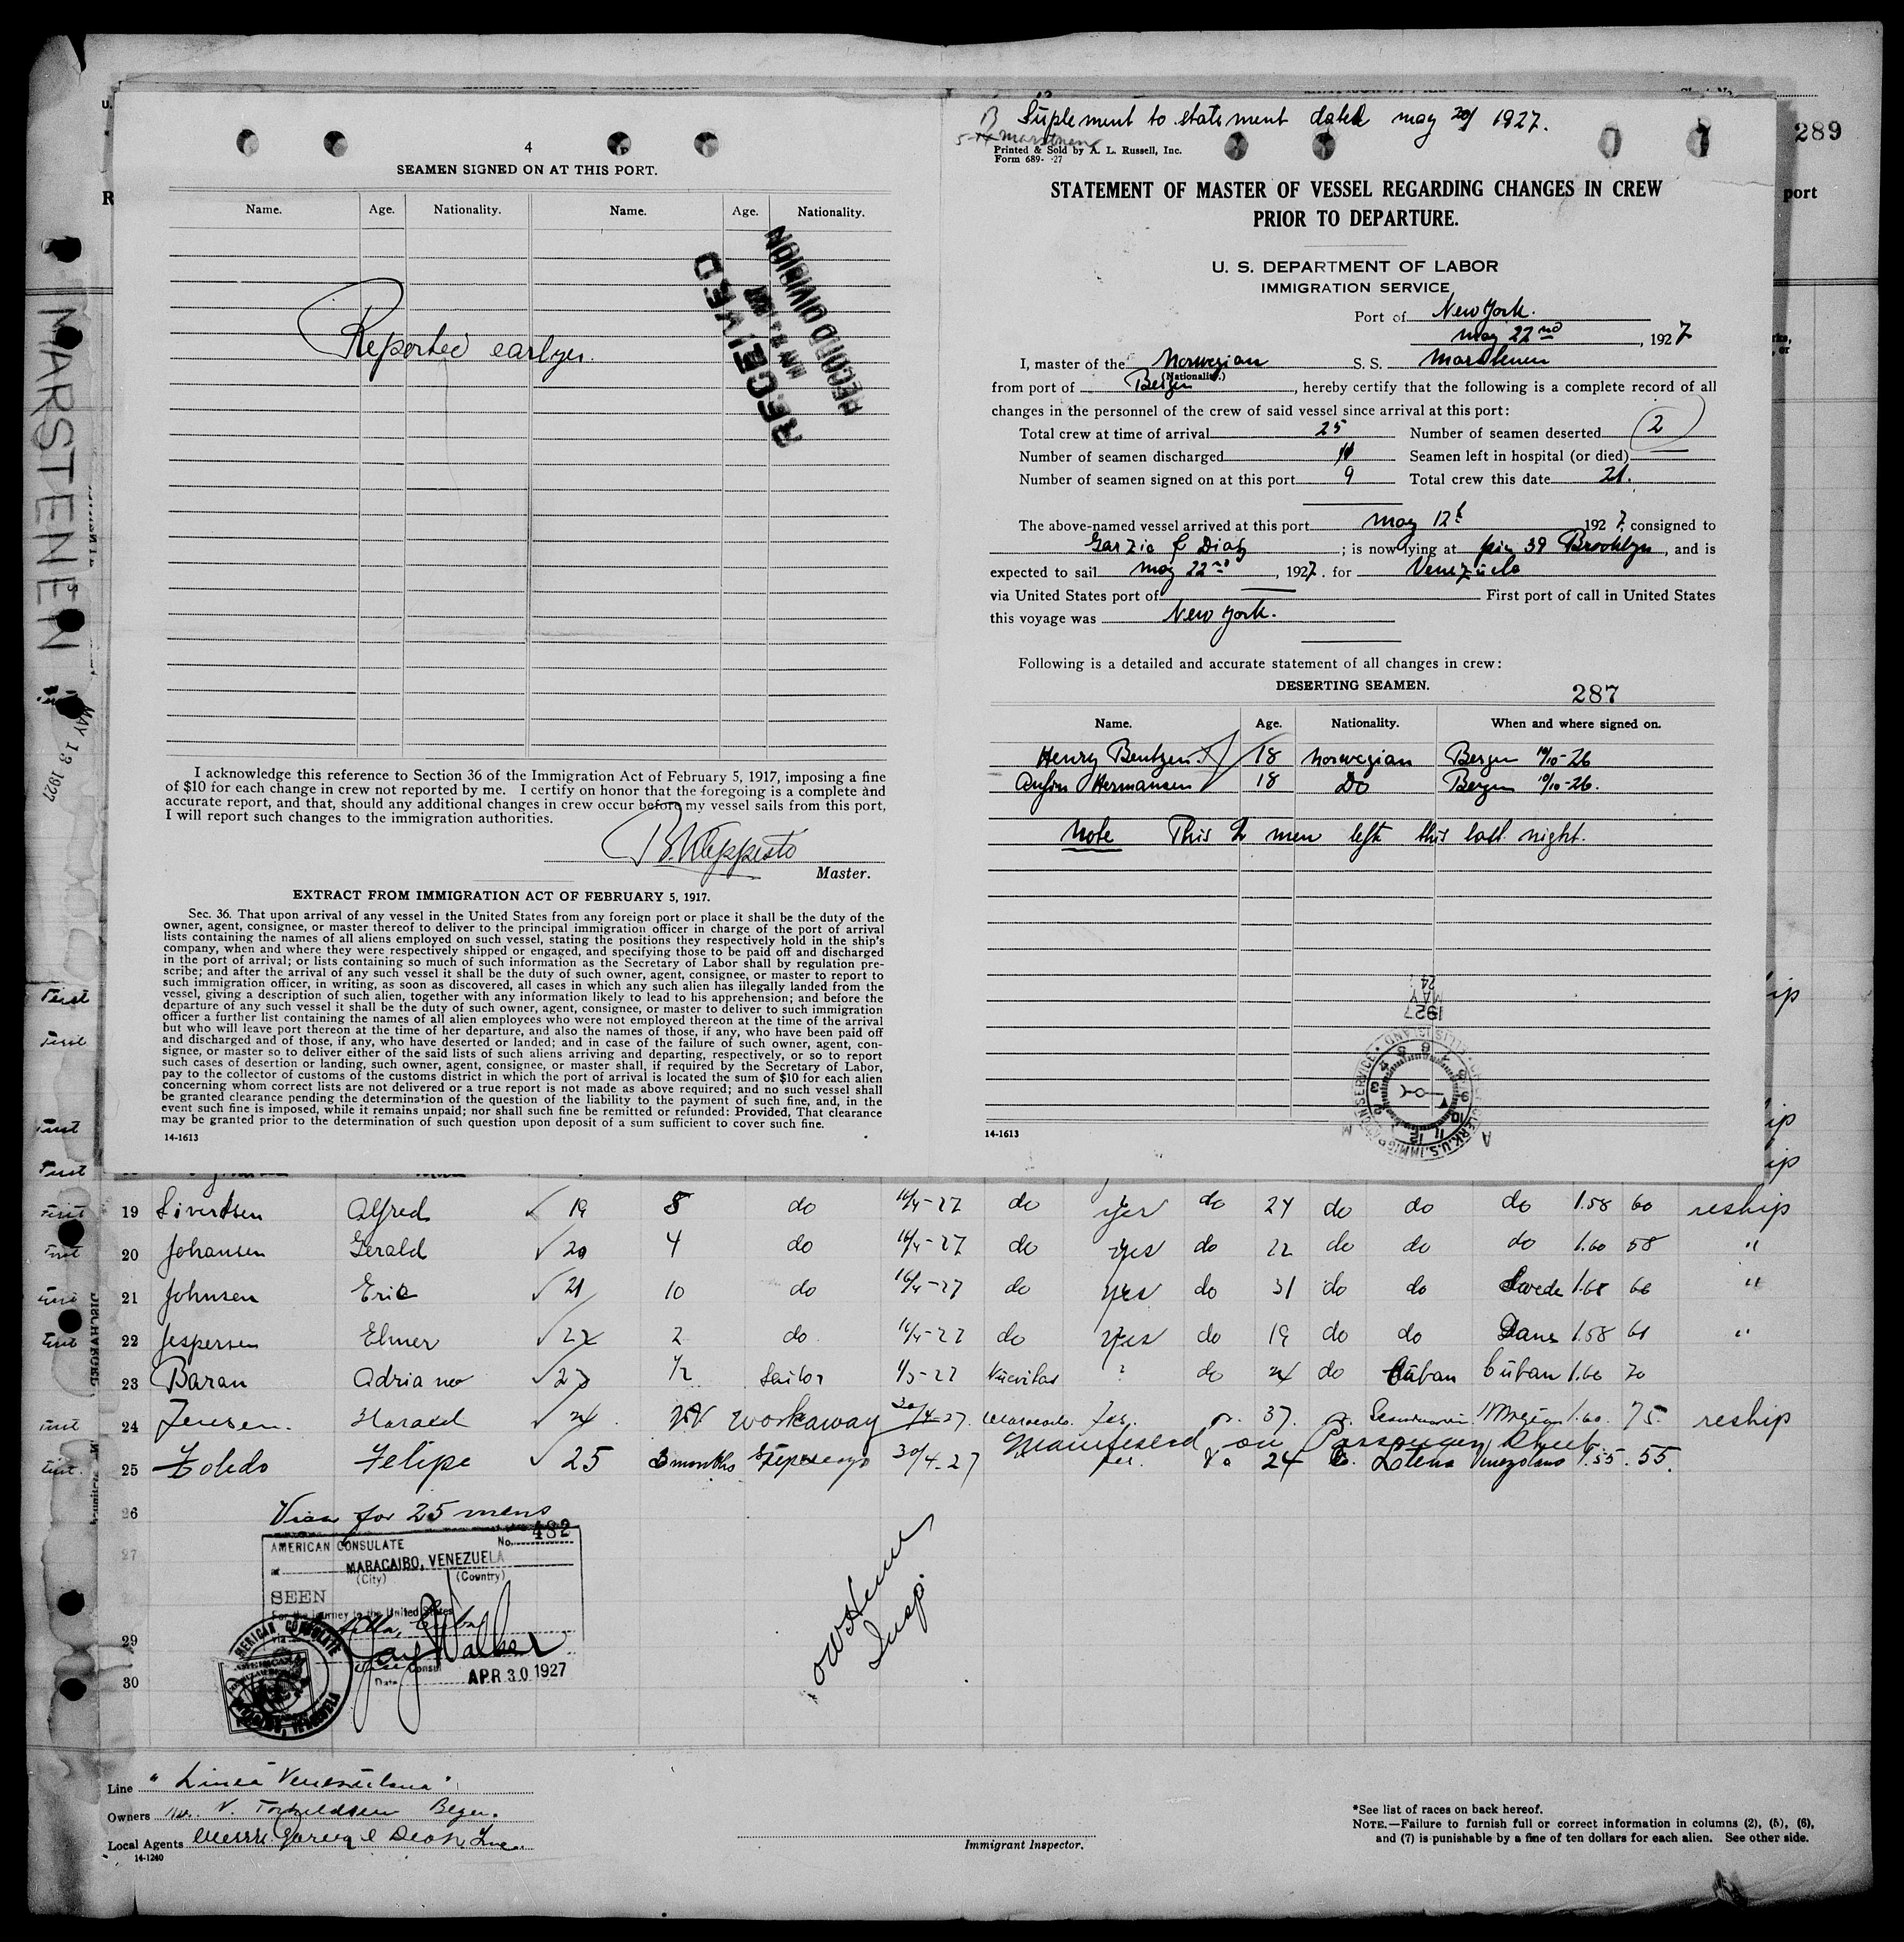 289
port
4
SEAMEN SIGNED ON AT THIS PORT.
Name. Age. Nationality. Name. Age. Nationality.
RECEIVED
RECORD DIVISION
Reported earlyer.
I acknowledge this reference to Section 36 of the Immigration Act of February 5, 1917, imposing a fine
of $10 for each change in crew not reported by me. I certify on honor that the foregoing is a complete and
accurate report, and that, should any additional changes in crew occur before my vessel sails from this port,
I will report such changes to the immigration authorities.
Master.
EXTRACT FROM IMMIGRATION ACT OF FEBRUARY 5, 1917.
Sec. 36. That upon arrival of any vessel in the United States from any foreign port or place it shall be the duty of the
owner, agent, consignee, or master thereof to deliver to the principal immigration officer in charge of the port of arrival
lists containing the names of all aliens employed on such vessel, stating the positions they respectively hold in the ship's
company, when and where they were respectively shipped or engaged, and specifying those to be paid off and discharged
in the port of arrival; or lists containing so much of such information as the Secretary of Labor shall by regulation pre-
scribe; and after the arrival of any such vessel it shall be the duty of such owner, agent, consignee, or master to report to
such immigration officer, in writing, as soon as discovered, all cases in which any such alien has illegally landed from the
vessel, giving a description of such alien, together with any information likely to lead to his apprehension; and before the
departure of any such vessel it shall be the duty of such owner, agent, consignee, or master to deliver to such immigration
officer a further list containing the names of all alien employees who were not employed thereon at the time of the arrival
but who will leave port thereon at the time of her departure, and also the names of those, if any, who have been paid off
and discharged and of those, if any, who have deserted or landed; and in case of the failure of such owner, agent, con-
signee, or master so to deliver either of the said lists of such aliens arriving and departing, respectively, or so to report
such cases of desertion or landing, such owner, agent, consignee, or master shall, if required by the Secretary of Labor,
pay to the collector of customs of the customs district in which the port of arrival is located the sum of $10 for each alien
concerning whom correct lists are not delivered or a true report is not made as above required; and no such vessel shall
be granted clearance pending the determination of the question of the liability to the payment of such fine, and, in the
event such fine is imposed, while it remains unpaid; nor shall such fine be remitted or refunded: Provided, That clearance
may be granted prior to the determination of such question upon deposit of a sum sufficient to cover such fine.
14-1613
Suplement to statement dated may 20/ 1927.
Printed & Sold by A. L. Russell, Inc.
Form 689- -27
STATEMENT OF MASTER OF VESSEL REGARDING CHANGES IN CREW
PRIOR TO DEPARTURE.
U. S. DEPARTMENT OF LABOR
IMMIGRATION SERVICE
Port of New York.
may 22nd, 1927
I, master of the Norwegian S. S. Marstenen
(Nationality.)
from port of Bergen, hereby certify that the following is a complete record of all
changes in the personnel of the crew of said vessel since arrival at this port:
Total crew at time of arrival 25 Number of seamen deserted 2
Number of seamen discharged 11 Seamen left in hospital (or died)
Number of seamen signed on at this port 9 Total crew this date 21.
The above-named vessel arrived at this port may 12th 1927, consigned to
Garzia & Diaz; is now lying at pier 39 Brooklyn, and is
expected to sail may 22nd, 1927. for Venezuela
via United States port of First port of call in United States
this voyage was New York.
Following is a detailed and accurate statement of all changes in crew:
DESERTING SEAMEN.
287
Name. Age. Nationality. When and where signed on.
Henry Bentzen 18 Norwegian Bergen 19/10-26
Hermansen 18 Do Bergen 19/10-26.
Note This 2 men left this last night.
1927
MAY
24
14-1613
MARSTENEN
MAY 13 1927
DISCHARGED
19 Sivertsen Alfred 19 8 do 16/4-27 do yes do 24 do do do 1.58 60 reship
20 Johansen Gerald 20 4 do 16/4-27 do yes do 22 do do do 1.60 58 "
21 Johnsen Eric 21 10 do 16/4-27 do yes do 31 do do Swede 1.68 66 "
22 Jespersen Elmer 22 2 do 16/4-27 do yes do 19 do do Dane 1.58 61 "
23 Baran Adriano 23 1/2 Sailor 1/3-27 Nuevitas ? do 24 do Cuban Cuban 1.60 70
24 Jensen. Harald 24. workaway 30/4-27. Maracaibo. Yes. 37. 1.60. 75. reship
Manifested on Passenger Sheet
25 Toledo Felipe 25 3 months 30/4-27 yes. 24 Venezolano 1.55. 55.
26
Visa for 25 mens
27
29
30
AMERICAN CONSULATE No. 482
at MARACAIBO, VENEZUELA
(City) (Country)
SEEN
For the journey to the United States
via Cuba
Jay Walker
Vice Consul
Date APR 30 1927
AMERICAN CONSULATE
Insp.
Line "Linea Venezolana"
Owners Bergen.
Local Agents Messrs Garcia & Diaz Inc.
14-1240
Immigrant Inspector.
*See list of races on back hereof.
NOTE.—Failure to furnish full or correct information in columns (2), (5), (6),
and (7) is punishable by a fine of ten dollars for each alien. See other side.